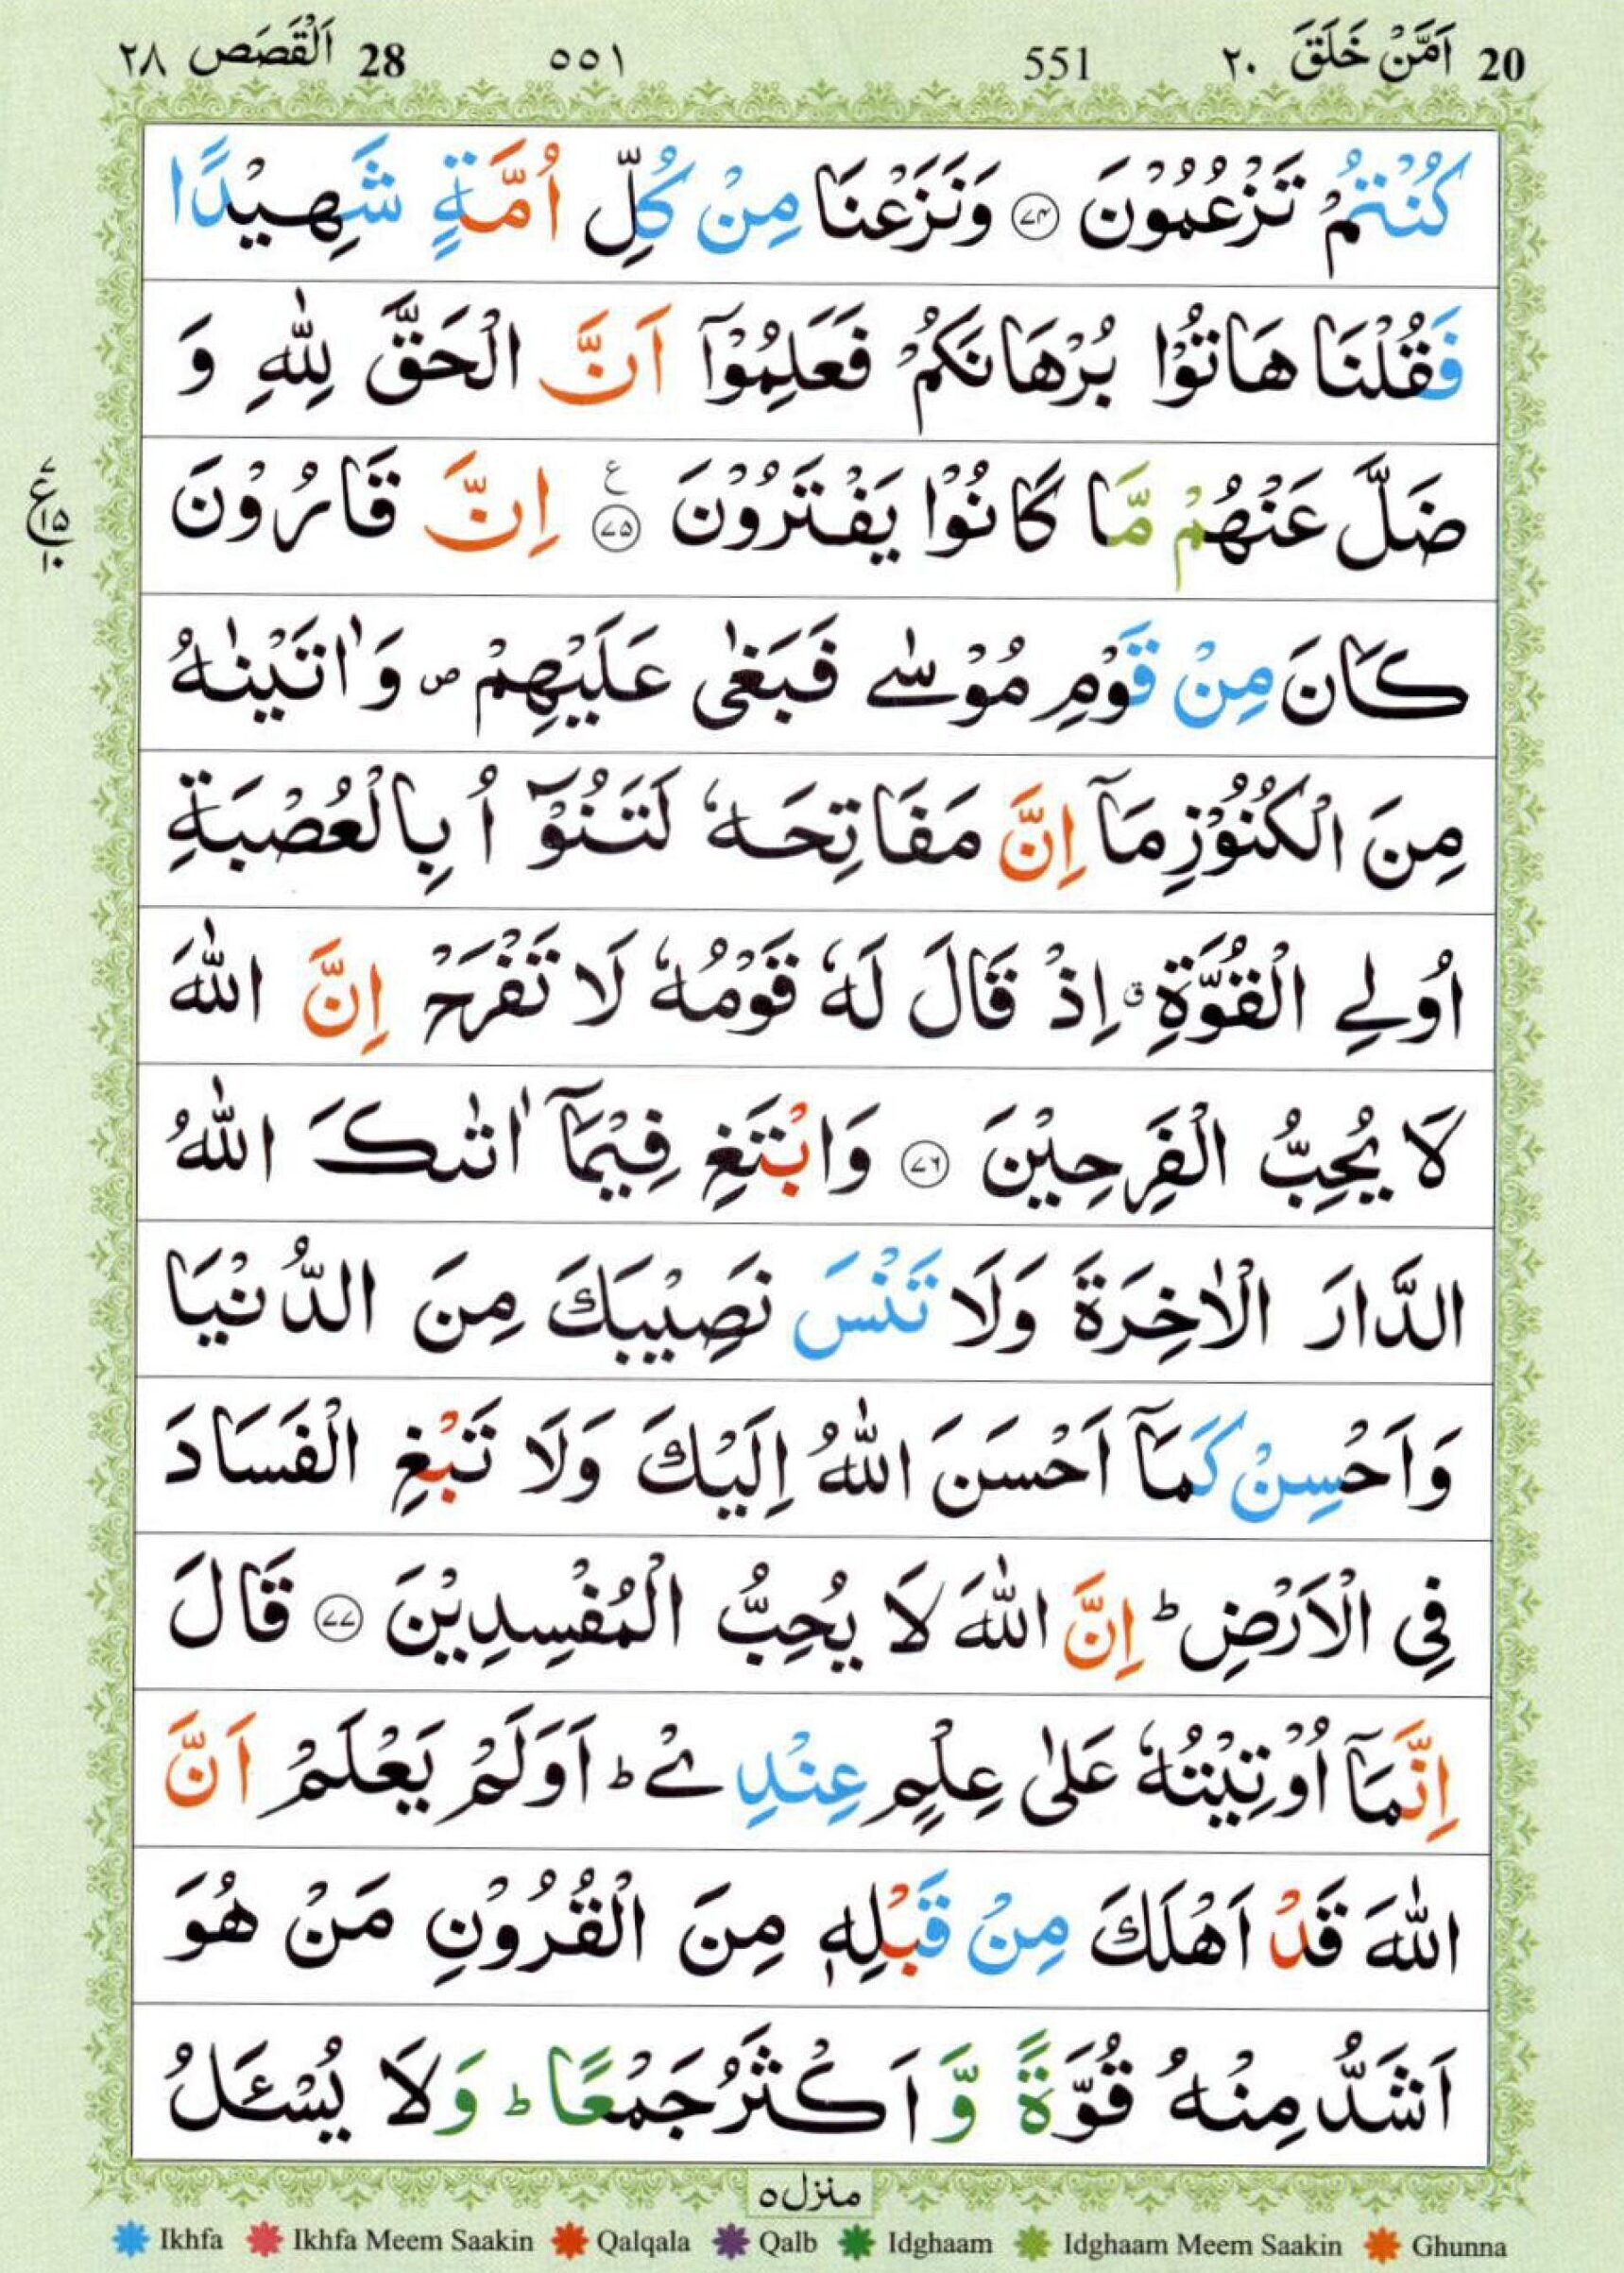 20 اَمَّنْ خَلَقَ ٢٠ 551 ٥٥١ 28 اَلْقَصَص ٢٨
كُنْتُمْ تَزْعُمُوْنَ ﴿٧٤﴾ وَنَزَعْنَا مِنْ كُلِّ اُمَّةٍ شَهِيْدًا
فَقُلْنَا هَاتُوْا بُرْهَانَكُمْ فَعَلِمُوْٓا اَنَّ الْحَقَّ لِلّٰهِ وَ
ضَلَّ عَنْهُمْ مَّا كَانُوْا يَفْتَرُوْنَ ﴿٧٥﴾ ع اِنَّ قَارُوْنَ
٧ ع ١٥ ١٠
كَانَ مِنْ قَوْمِ مُوْسٰے فَبَغٰى عَلَيْهِمْ ص وَاٰتَيْنٰهُ
مِنَ الْكُنُوْزِ مَآ اِنَّ مَفَاتِحَهٗ لَتَنُوْٓ اُ بِالْعُصْبَةِ
اُولِے الْقُوَّةِ ق اِذْ قَالَ لَهٗ قَوْمُهٗ لَا تَفْرَحْ اِنَّ اللّٰهَ
لَا يُحِبُّ الْفَرِحِيْنَ ﴿٧٦﴾ وَابْتَغِ فِيْمَآ اٰتٰىكَ اللّٰهُ
الدَّارَ الْاٰخِرَةَ وَلَا تَنْسَ نَصِيْبَكَ مِنَ الدُّنْيَا
وَاَحْسِنْ كَمَآ اَحْسَنَ اللّٰهُ اِلَيْكَ وَلَا تَبْغِ الْفَسَادَ
فِى الْاَرْضِ ط اِنَّ اللّٰهَ لَا يُحِبُّ الْمُفْسِدِيْنَ ﴿٧٧﴾ قَالَ
اِنَّمَآ اُوْتِيْتُهٗ عَلٰى عِلْمٍ عِنْدِےْ ط اَوَلَمْ يَعْلَمْ اَنَّ
اللّٰهَ قَدْ اَهْلَكَ مِنْ قَبْلِهٖ مِنَ الْقُرُوْنِ مَنْ هُوَ
اَشَدُّ مِنْهُ قُوَّةً وَّ اَكْثَرُ جَمْعًا ط وَلَا يُسْـَٔلُ
منزل ٥
Ikhfa Ikhfa Meem Saakin Qalqala Qalb Idghaam Idghaam Meem Saakin Ghunna